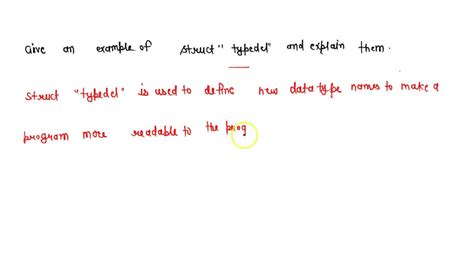 Give an example of struct "typedel" and explain them.
struct "typedel" is used to define new data type names to make a
program more readable to the prog